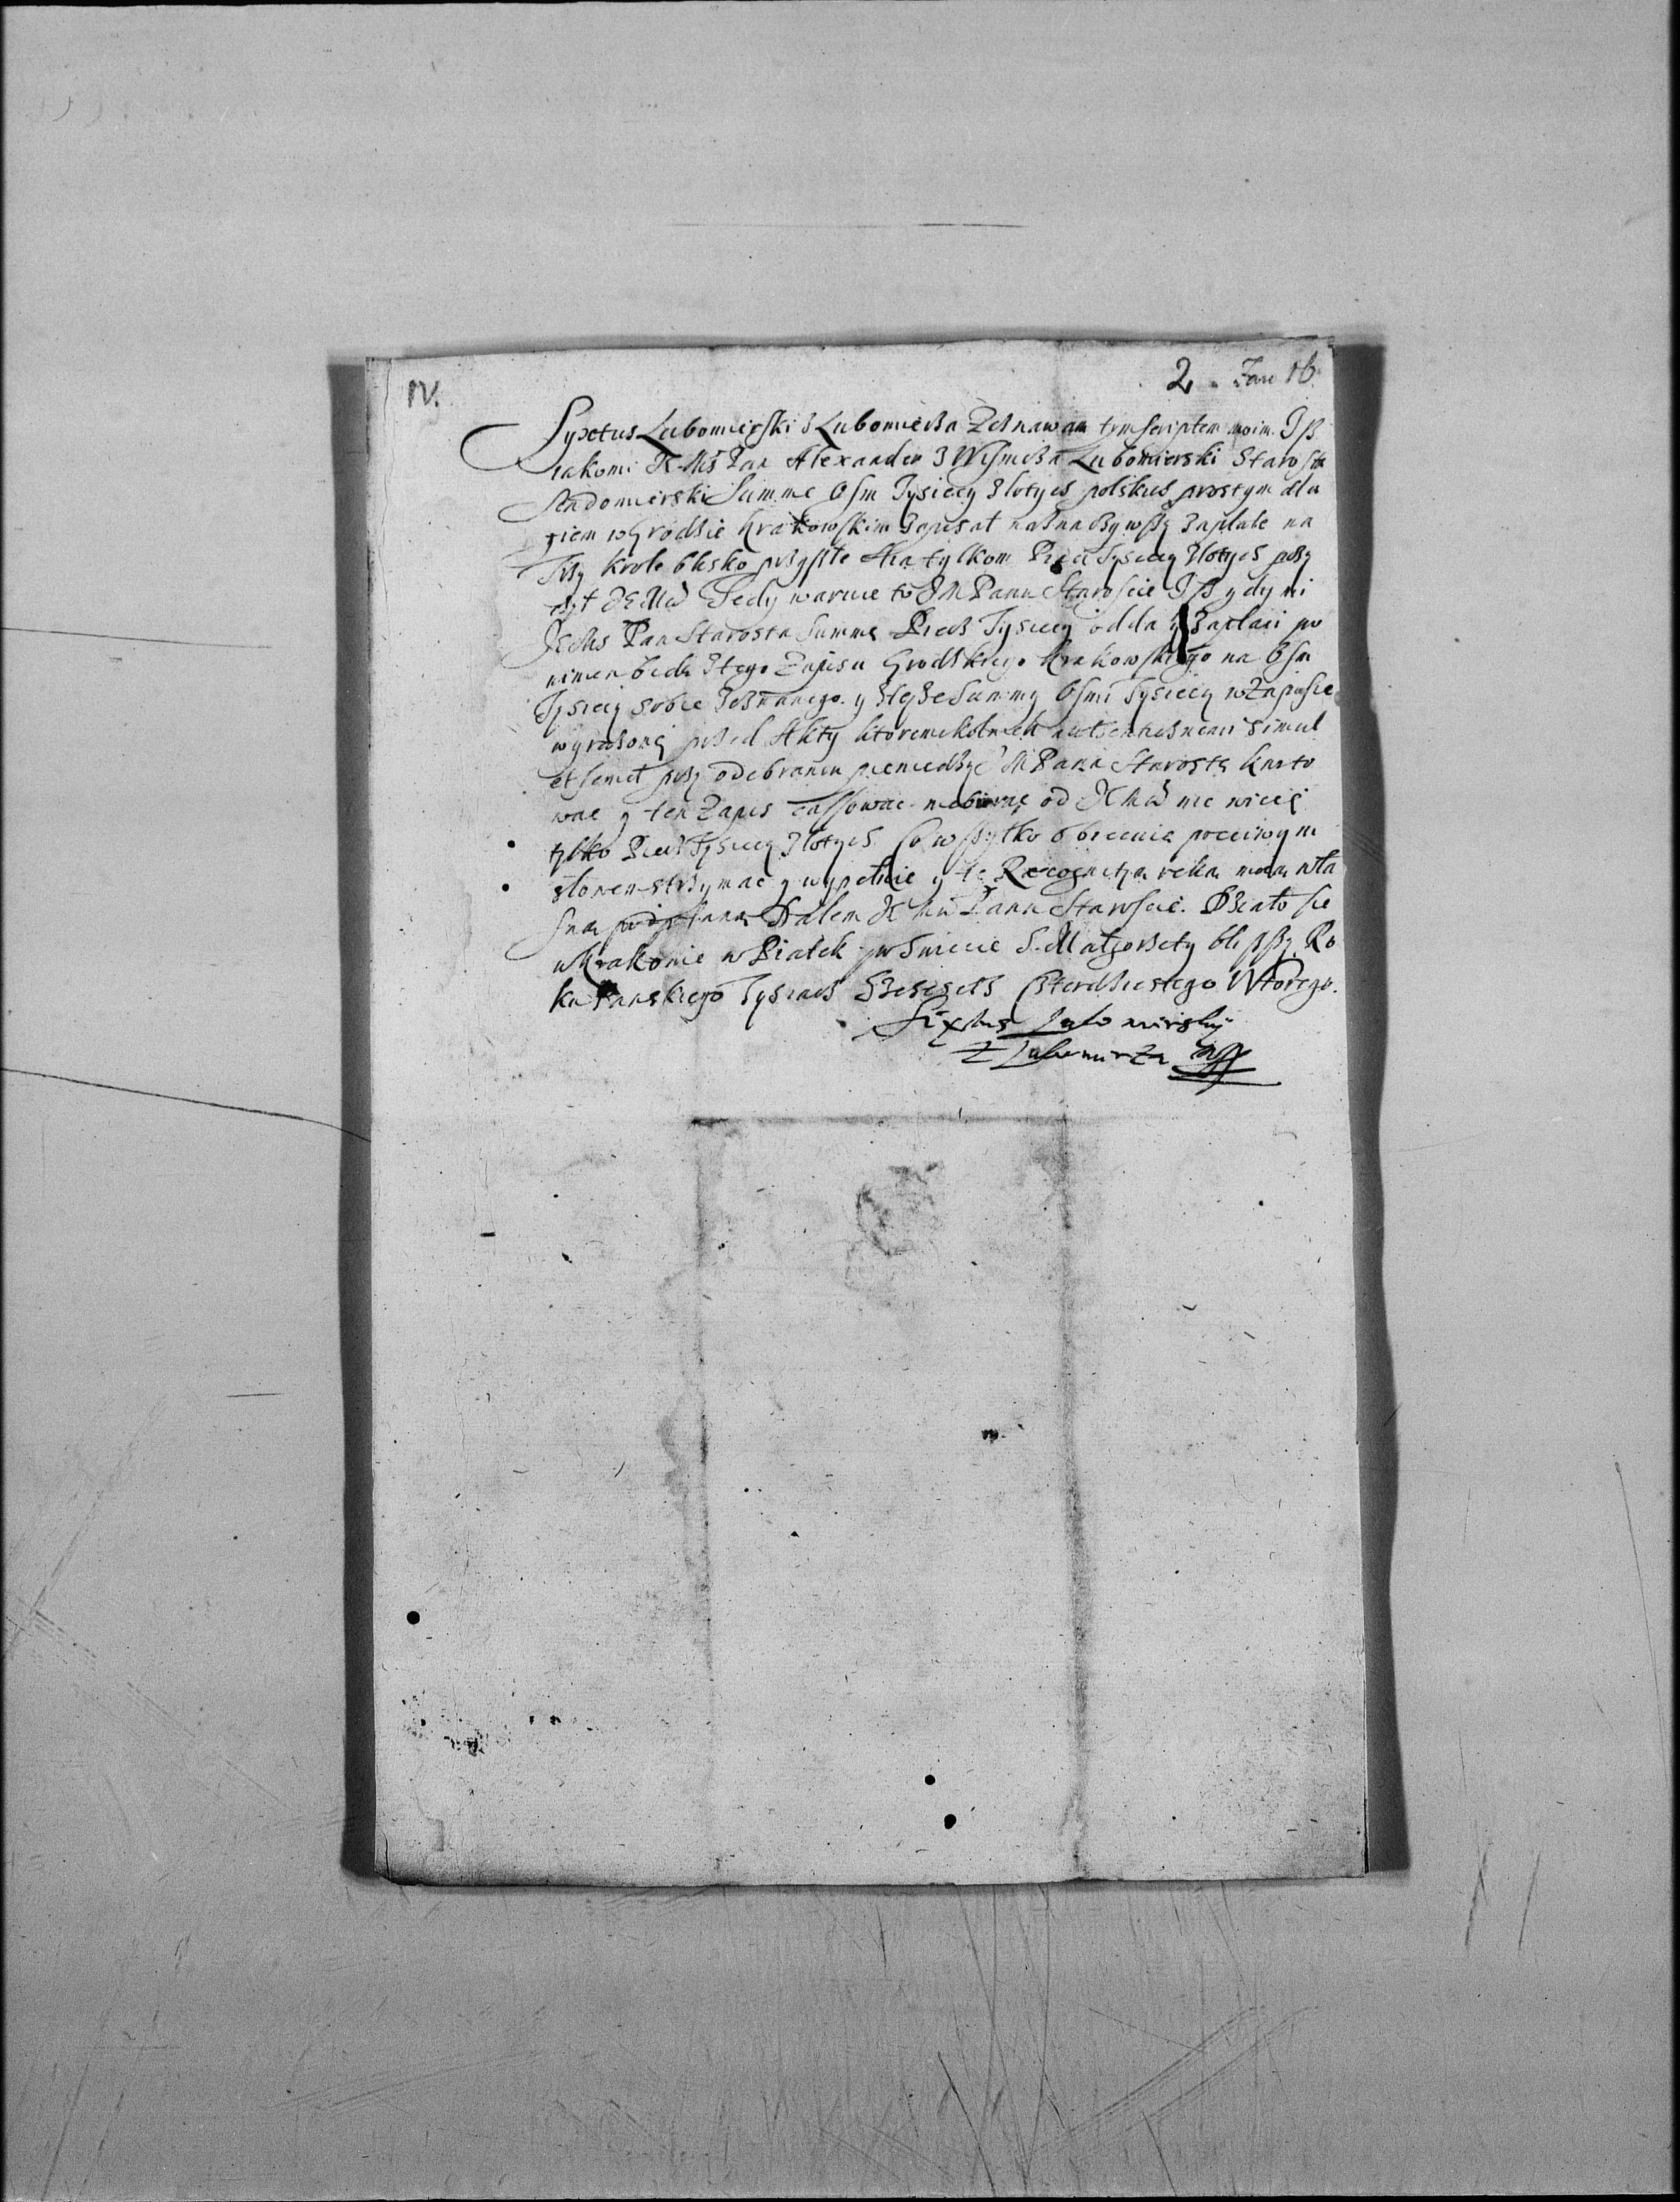 IV.
2
Syxtus Lubomierski z Lubomierza Zeznawam tym scriptem moim. Isz
iakom JE Mś Pan Alexander z Wiśnicza Lubomierski Starosta
Sendomierski Summe Osm Tysięcy Złotych polskich prostym dłu
giem w Grodzie Krakowskim zapisał naznaczywszy zaplate na
Trzy Krole blisko przyszłe A ia tylkom Pięć Tysięcy złotych
JE Mci Tedy waruie to JM Panu Staroscie Isz gdy mi
JE Ms Pan Starosta Summe Pięć Tysięcy odda y zapłaci po
winien bede z tego Zapisu Grodzkiego Krakowskiego na Osm
Tysięcy sobie zeznanego. y z teyze Summy Osmi Tysięcy w Zapisie
wyrazoney przed Akty ktoremikolwiek autentycznemi simul
et semel przy odebraniu pieniedzy JM Pana Staroste kwito
wac y ten Zapis cassowac nie biorąc od JE Mci nic wiecy
tylko Pięć Tysięcy złotych Co wszytko obiecuie poćciwym
słowem strzymac y wypełnic y te Recognitią reką moią wła
sną podpisaną Dałem JE Mci Panu Staroscie. Działo sie
w Krakowie w Piatek po Swiecie S. Małgorzety bliższy Ro
ku Panskiego Tysiąc Szescset Czterdziestego Wtorego.
Sixtus Lubomirsky
Z Lubomirza mpp